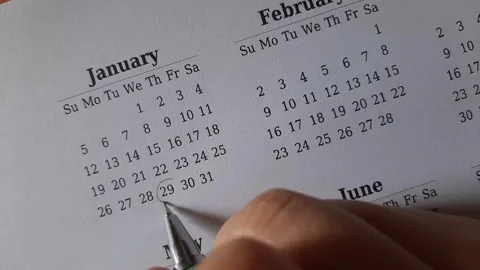 January
Su Mo Tu We Th Fr Sa
1 2 3 4
5 6 7 8 9 10 11
12 13 14 15 16 17 18
19 20 21 22 23 24 25
26 27 28 29 30 31
February
Su Mo Tu We Th Fr Sa
1
2 3 4 5 6 7 8
9 10 11 12 13 14 15
16 17 18 19 20 21 22
23 24 25 26 27 28
2 3
9 10
16 17
23
30
June